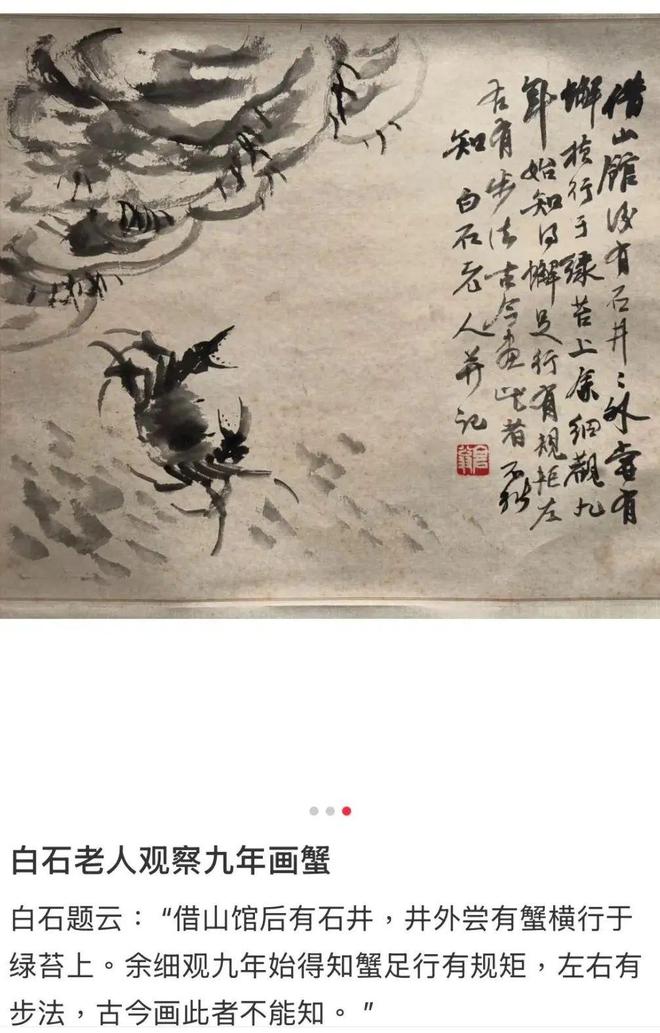 借山館後有石井〻外嘗有
蠏橫行于綠苔上余細觀九
年始知得蠏足行有規矩左
右有步法古今畫此者不能
知 白石老人并記
白石老人观察九年画蟹
白石题云：“借山馆后有石井，井外尝有蟹横行于
绿苔上。余细观九年始得知蟹足行有规矩，左右有
步法，古今画此者不能知。”